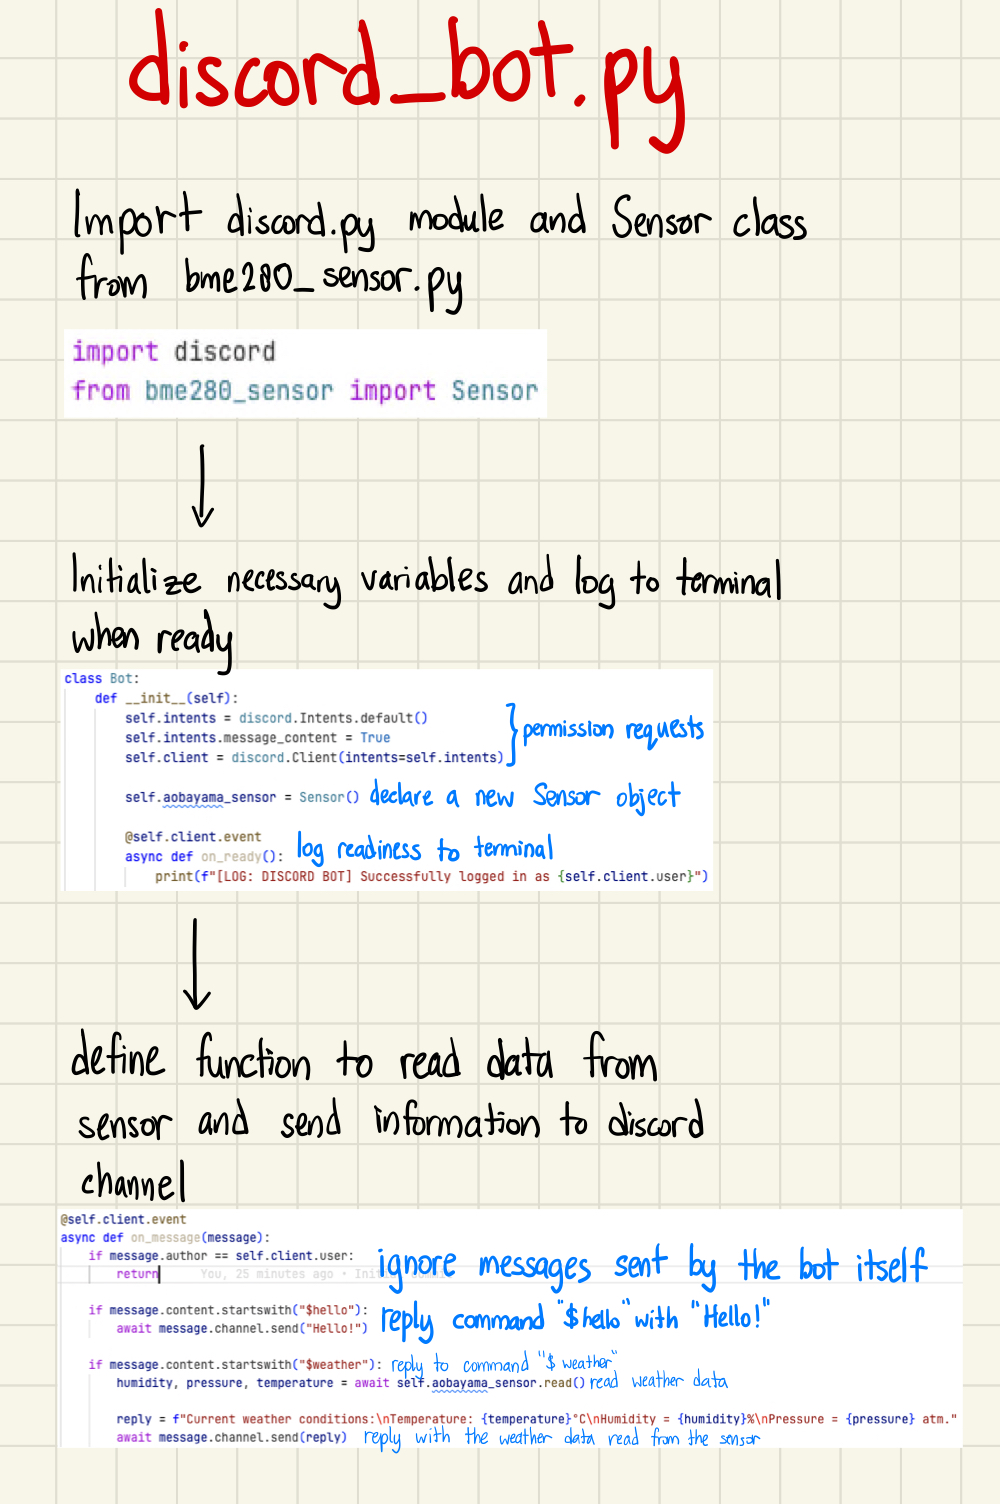 discord_bot.py
Import discord.py module and Sensor class
from bme280_sensor.py
import discord
from bme280_sensor import Sensor
Initialize necessary variables and log to terminal
when ready
class Bot:
def __init__(self):
self.intents = discord.Intents.default()
self.intents.message_content = True
self.client = discord.Client(intents=self.intents)
permission requests
self.aobayama_sensor = Sensor() declare a new Sensor object
@self.client.event
async def on_ready(): log readiness to terminal
print(f"[LOG: DISCORD BOT] Successfully logged in as {self.client.user}")
define function to read data from
sensor and send information to discord
channel
@self.client.event
async def on_message(message):
if message.author == self.client.user:
return You, 25 minutes ago •
ignore messages sent by the bot itself
if message.content.startswith("$hello"):
await message.channel.send("Hello!")
reply command "$hello" with "Hello!"
if message.content.startswith("$weather"): reply to command "$weather"
humidity, pressure, temperature = await self.aobayama_sensor.read() read weather data
reply = f"Current weather conditions:\nTemperature: {temperature}°C\nHumidity = {humidity}%\nPressure = {pressure} atm."
await message.channel.send(reply) reply with the weather data read from the sensor